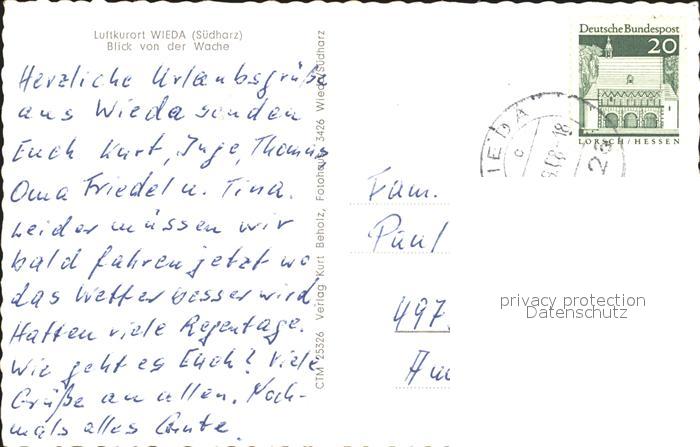 Luftkurort WIEDA (Südharz)
Blick von der Wache
Herzliche Urlaubsgrüße
aus Wieda senden
Euch Kurt, Inge, Thomas,
Oma Friedel u. Tina.
Leider müssen wir
bald fahren jetzt wo
das Wetter besser wird
Hatten viele Regentage.
Wie geht es Euch? Viele
Grüße an allen. Noch-
mals alles Gute.
CTM 25326 Verlag Kurt Beholz, Fotohaus, 3426 Wieda/Südharz
Deutsche Bundespost
20
LORSCH/HESSEN
Fam.
Paul
497
privacy protection
Datenschutz